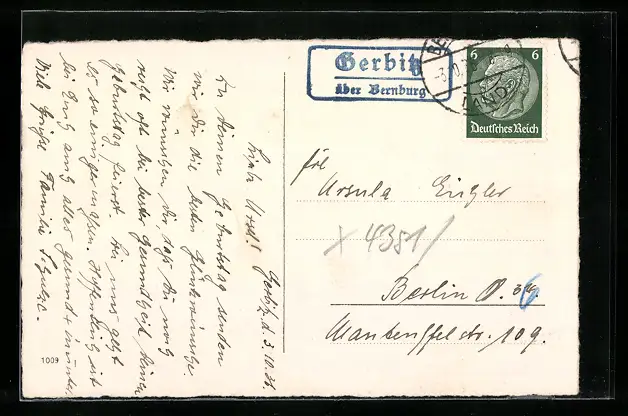 Gerbitz
über Bernburg
6 6
Deutsches Reich
LAND
Gerbitz, d. 3.10.36.
Liebe Ursel!
Zu deinem Geburtstag senden
wir Dir die besten Glückwünsche.
Wir wünschen Dir, daß Du noch
recht oft bei bester Gesundheit deinen
Geburtstag feierst. Bei uns geht
es so einigermaßen. Hoffentlich ist
bei Euch auch alles gesund + munter
Viele Grüße Familie
Frl.
Ursula
X 4381/
Berlin O. 34.
6
Manteuffelstr. 109.
1009